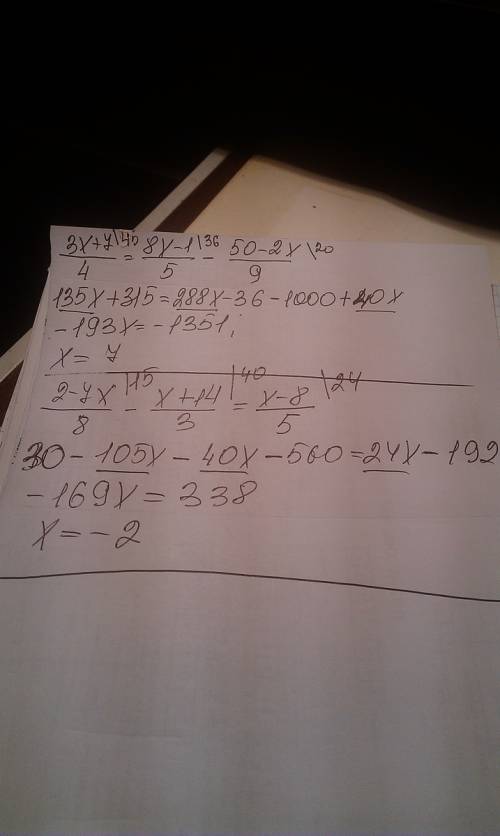 (3x+7)/4 \45 = (8x-1)/5 \36 - (50-2x)/9 \20
135x+315=288x-36-1000+40x
-193x=-1351;
x= 7
(2-7x)/8 |15 - (x+14)/3 |40 = (x-8)/5 \24
30-105x-40x-560=24x-192
-169x=338
x=-2